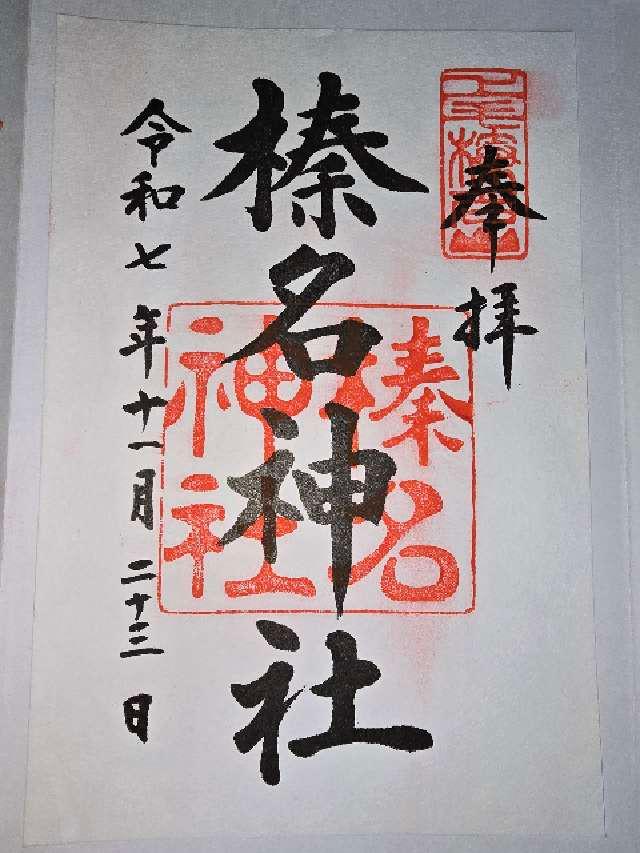 奉拝
榛名神社
令和七年十一月二十三日
榛名
神社